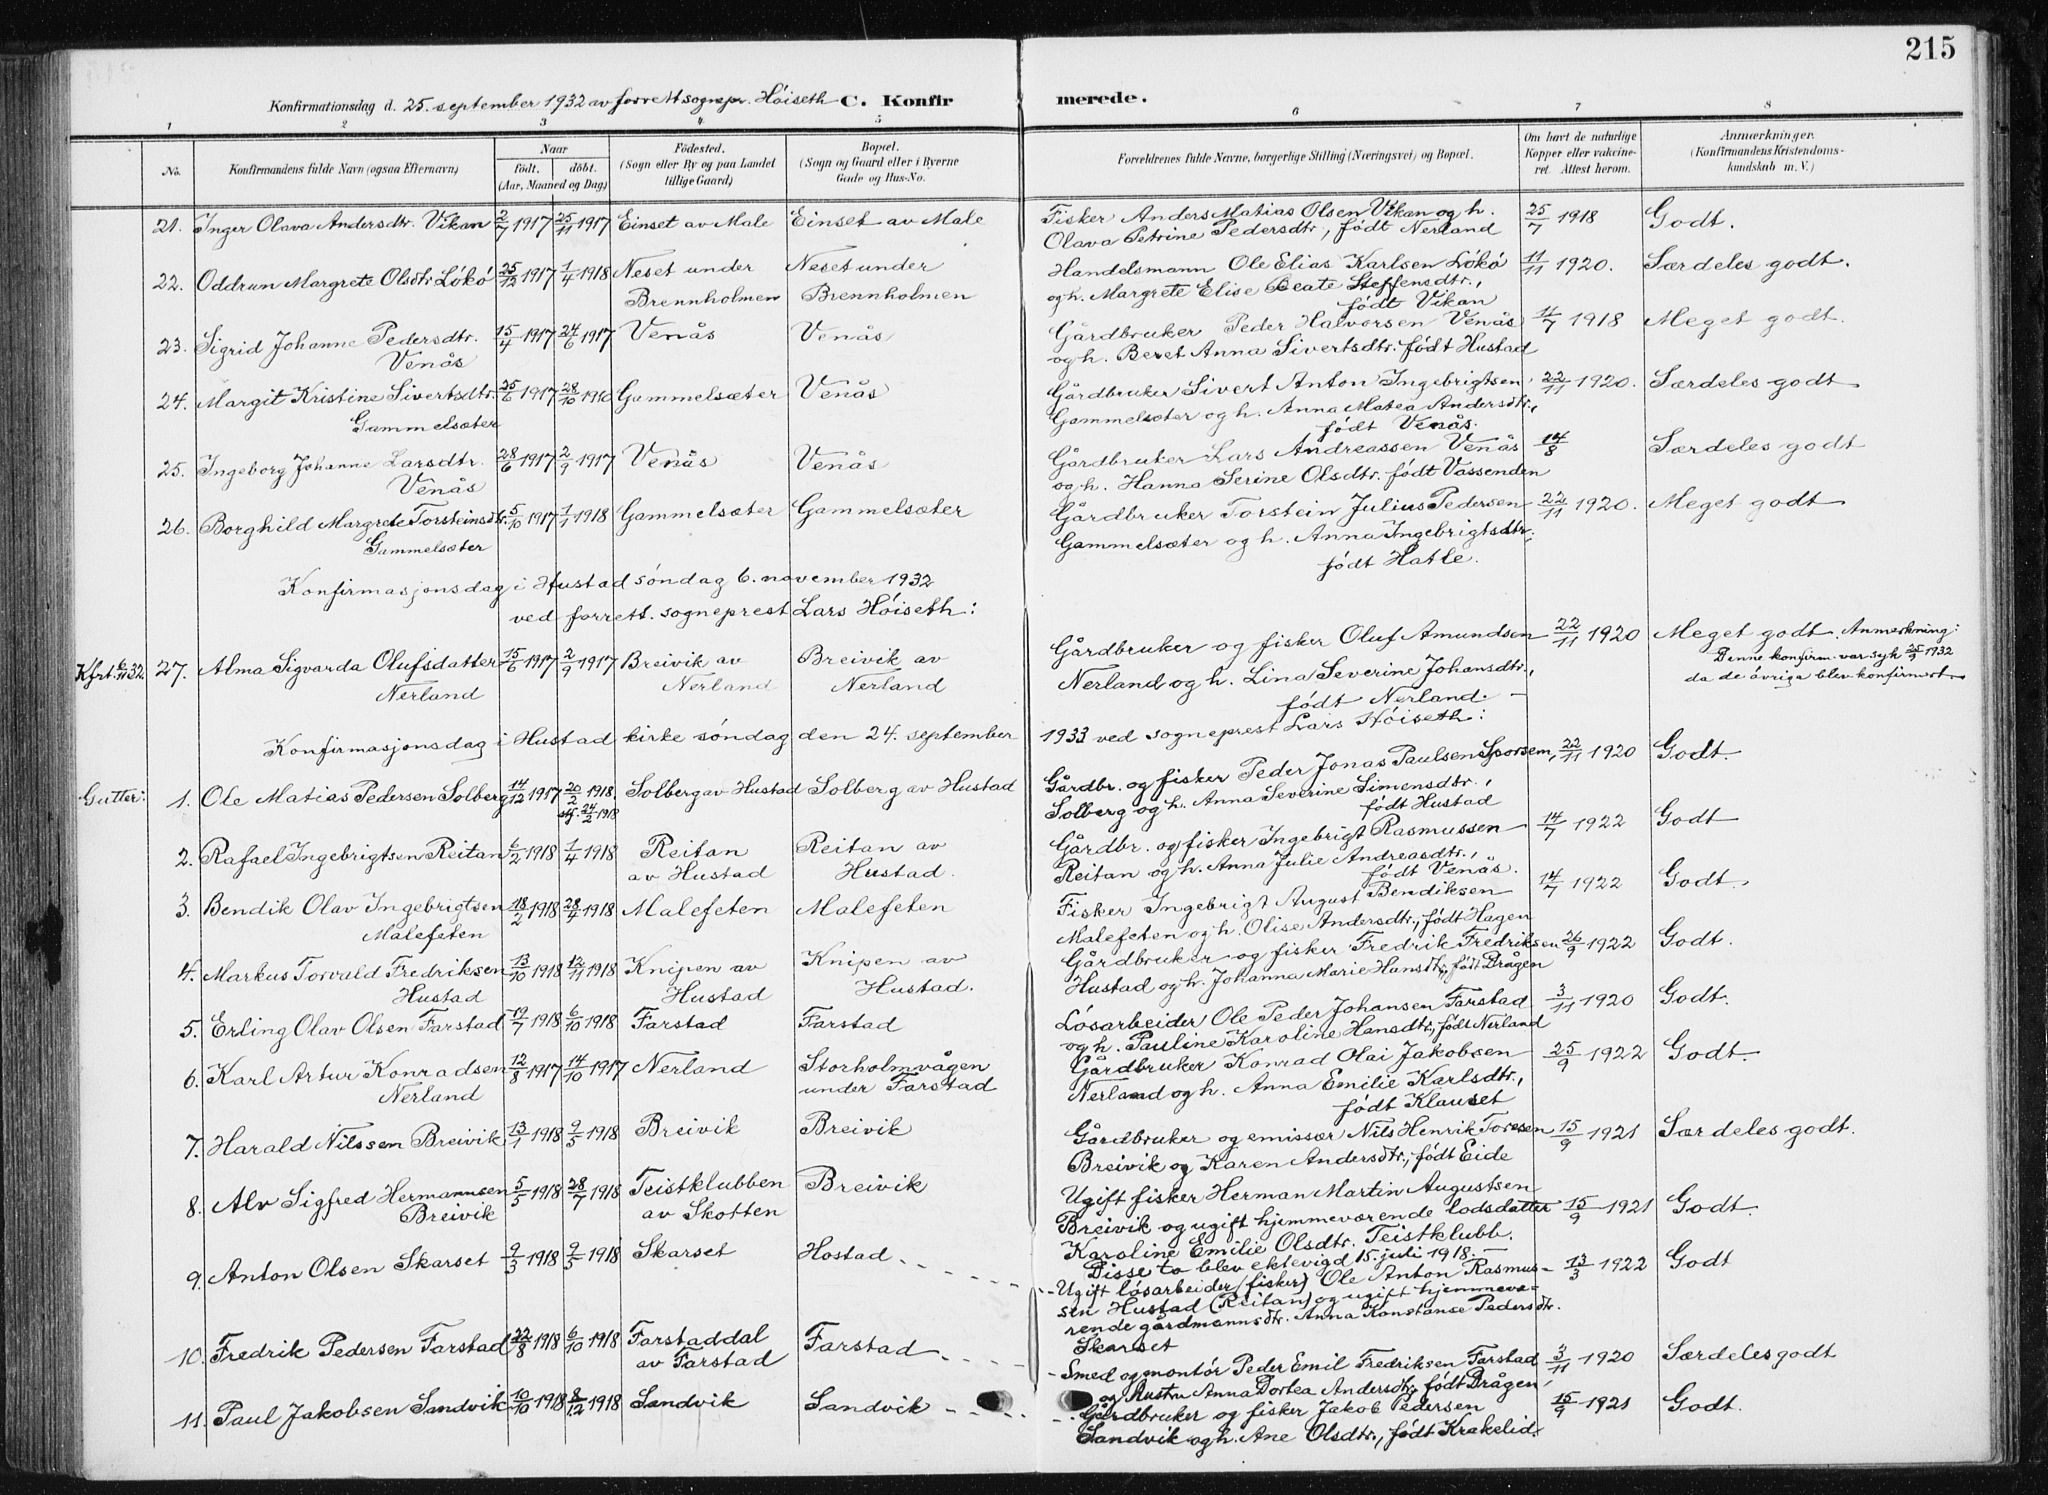 215
Konfirmationsdag d. 25. september 1932 av forrett sognepr. Höiseth C. Konfirmerede.
1 2 3 4 5 6 7 8
No. Konfirmandens fulde Navn (ogsaa Efternavn) Naar født. døbt. (Aar, Maaned og Dag) Fødested. (Sogn eller By og paa Landet tillige Gaard) Bopæl. (Sogn og Gaard eller i Byerne Gade og Hus-No. Forældrenes fulde Navne, borgerlige Stilling (Næringsvei) og Bopæl. Om havt de naturlige Kopper eller vakcineret. Attest herom. Anmærkninger. (Konfirmandens Kristendomskundskab m. V.)
21. Inger Olava Andersdtr. Vikan 2/7 1917 25/11 1917 Einset av Male Einset av Male Fisker Anders Matias Olsen Vikan og h. 25/7 1918 Godt.
Olava Petrine Pedersdtr, født Nerland
22. Oddrun Margrete Olsdtr Lökö 25/12 1917 1/4 1918 Neset under Neset under Handelsmann Ole Elias Karlsen Lökö 11/11 1920. Særdeles godt.
Brennholmen Brennholmen og h. Margrete Elise Beate Steffensdtr.,
født Vikan
23. Sigrid Johanne Pedersdtr. 15/4 1917 24/6 1917 Venås Venås Gårdbruker Peder Halvorsen Venås 11/7 1918 Meget godt.
Venås og h. Beret Anna Sivertsdtr. født Hustad
24. Margit Kristine Sivertsdtr. 25/6 1917 28/10 1910 Gammelsæter Venås Gårdbruker Sivert Anton Ingebrigtsen 22/11 1920. Særdeles godt
Gammelsæter Gammelsæter og h. Anna Matea Andersdtr.,
født Venås.
25. Ingeborg Johanne Larsdtr. 28/6 1917 2/9 1917 Venås Venås Gårdbruker Lars Andreassen Venås 14/8 Særdeles godt
Venås og h. Hanna Serine Olsdtr. født Vassenden
26. Borghild Margrete Torsteinsdtr. 5/10 1917 1/1 1918 Gammelsæter Gammelsæter Gårdbruker Torstein Julius Pedersen 22/11 1920. Meget godt
Gammelsæter Gammelsæter og h. Anna Ingebrigtsdtr,
født Hatle.
Konfirmasjonsdag i Hustad söndag 6. november 1932
ved forrett. sogneprest Lars Höiseth:
Kfrt. 6/11 32. 27. Alma Sigvarda Olufsdatter 15/6 1917 2/9 1917 Breivik av Breivik av Gårdbruker og fisker Oluf Amundsen 22/11 1920 Meget godt. Anmerkning:
Nerland Nerland Nerland Nerland og h. Lina Severine Johansdtr., Denne konfirm. var syk 25/9 1932
født Nerland. da de övriga blev konfirmert
Konfirmasjonsdag i Hustad kirke söndag den 24. september 1933 ved sogneprest Lars Höiseth:
Gutter: 1. Ole Matias Pedersen Solberg 14/12 1917 20/2 1918 Solberg av Hustad Solberg av Hustad Gårdbr. og fisker Peder Jonas Paulsen Sporsem, 22/11 1920 Godt.
24/2 1918 Solberg og h. Anna Severine Simensdtr.,
født Hustad
2. Rafael Ingebrigtsen Reitan 6/2 1918 1/4 1918 Reitan Reitan av Gårdbr. og fisker Ingebrigt Rasmussen 14/7 1922 Godt
av Hustad Hustad. Reitan og h. Anna Julie Andreasdtr.,
født Venås.
3. Bendik Olav Ingebrigtsen 18/2 1918 28/4 1918 Malefeten Malefeten Fisker Ingebrigt August Bendiksen 14/7 1922 Godt.
Malefeten Malefeten og h. Olise Andersdtr., født Hagen
4. Markus Torvald Fredriksen 13/10 1918 12/11 1918 Knipen av Knipen av Gårdbruker og fisker Fredrik Fredriksen 26/9 1922 Godt.
Hustad Hustad Hustad. Hustad og h. Johanna Marie Hansdtr, født Drågen
5. Erling Olav Olsen Farstad 19/7 1918 6/10 1918 Farstad Farstad Lösarbeider Ole Peder Johansen Farstad 3/11 1920 Godt.
og h. Pauline Karoline Hansdtr., født Nerland
6. Karl Artur Konradsen 12/8 1917 14/10 1917 Nerland Storholmvågen Gårdbruker Konrad Olai Jakobsen 25/9 1922 Godt.
Nerland under Farstad Nerland og h. Anna Emilie Karlsdtr.,
født Klauset
7. Harald Nilssen Breivik 13/1 1918 9/5 1918 Breivik Breivik Gårdbruker og emissær Nils Henrik Toresen 15/9 1921 Særdeles godt.
Breivik og Karen Andersdtr., født Eide
8. Alv Sigfred Hermannsen 5/5 1918 28/7 1918 Teistklubben Breivik Ugift fisker Herman Martin Augustsen 15/9 1921 Godt.
Breivik av Skotten Breivik og ugift hjemmeværende lodsdatter
Karoline Emilie Olsdtr. Teistklubb.
Disse to blev ektevigd 15. juli 1918. —
9. Anton Olsen Skarset 9/3 1918 9/5 1918 Skarset Hostad Ugift lösarbeider (fisker) Ole Anton Rasmus- 13/3 1922 Godt
sen Hustad (Reitan) og ugift hjemmevæ-
rende gårdmannsdtr. Anna Konstanse Pedersdtr.
Skarset
10. Fredrik Pedersen Farstad 22/8 1918 6/10 1918 Farstaddal Farstad Smed og montör Peder Emil Fredriksen Farstad 3/11 1920 Særdeles godt
av Farstad og Hustru Anna Dortea Andersdtr, født Drågen
11. Paul Jakobsen Sandvik 10/10 1918 8/12 1918 Sandvik Sandvik Gårdbruker og fisker Jakob Pedersen 15/9 1921 Godt.
Sandvik og h. Ane Olsdtr., født Krakelid.